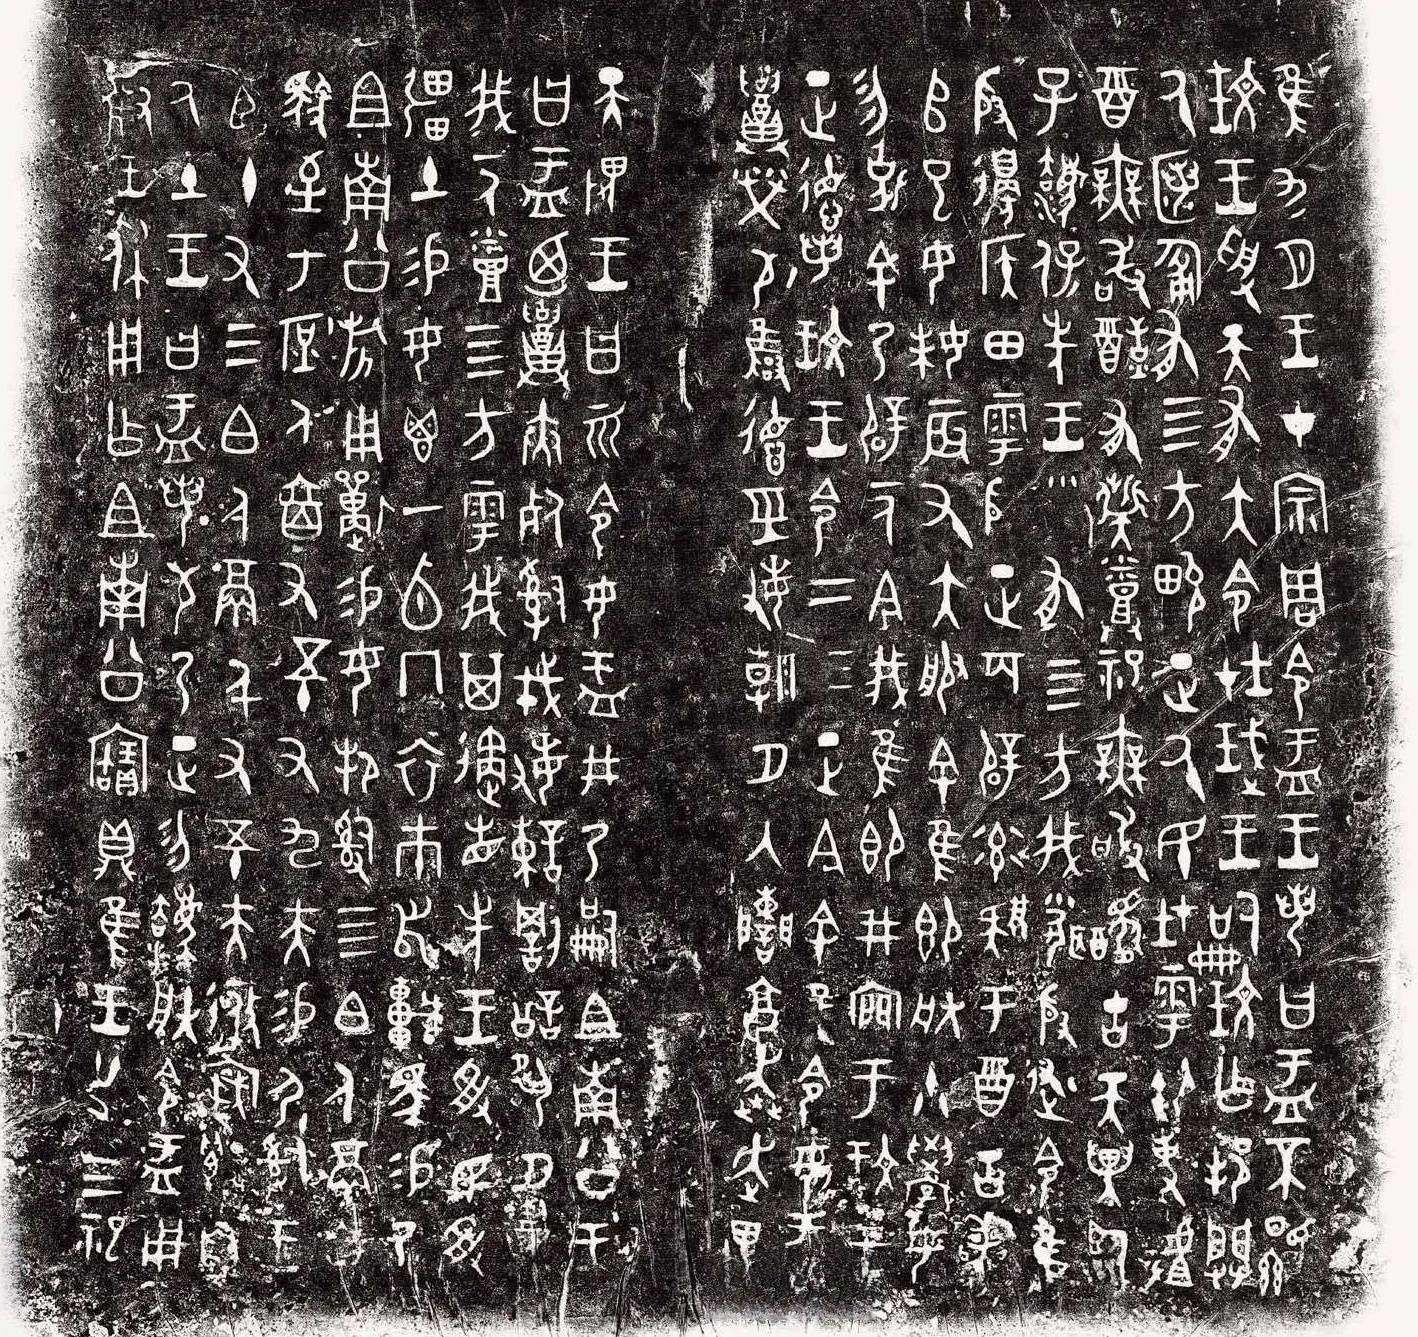 隹九月王才宗周令盂王若曰盂不顯
玟王受天有大令在珷王嗣玟乍邦闢
厥匿匍有四方畯正厥民在雩御事䖒
酉無敢醻有柴烝祀無敢醻古天異臨
子灋保先王有四方我聞殷述令隹
殷邊侯田雩殷正百辟率肄于酉古喪
𠂤巳女妹辰又大服余隹即朕小學女
勿余乃辟一人今我隹即井㐭于玟王
正德若玟王令二三正今余隹令女盂
召榮敬雝德巠敏朝夕入讕享奔走畏
天畏王曰而令女盂井乃嗣且南公王
曰盂廼召夾死司戎敏諫罰訟夙夕召
我一人烝四方雩我其遹省先王受民受
疆土易女鬯一卣冂衣巿舄車馬易乃
且南公旂用狩易女邦司四白人鬲自
馭至于庶人六百又五十又九夫易尸司
王臣十又三白人鬲千又五十夫
自厥土王曰盂若敬乃正勿灋朕令盂用
對王休用乍且南公寶鼎隹王廿又三祀